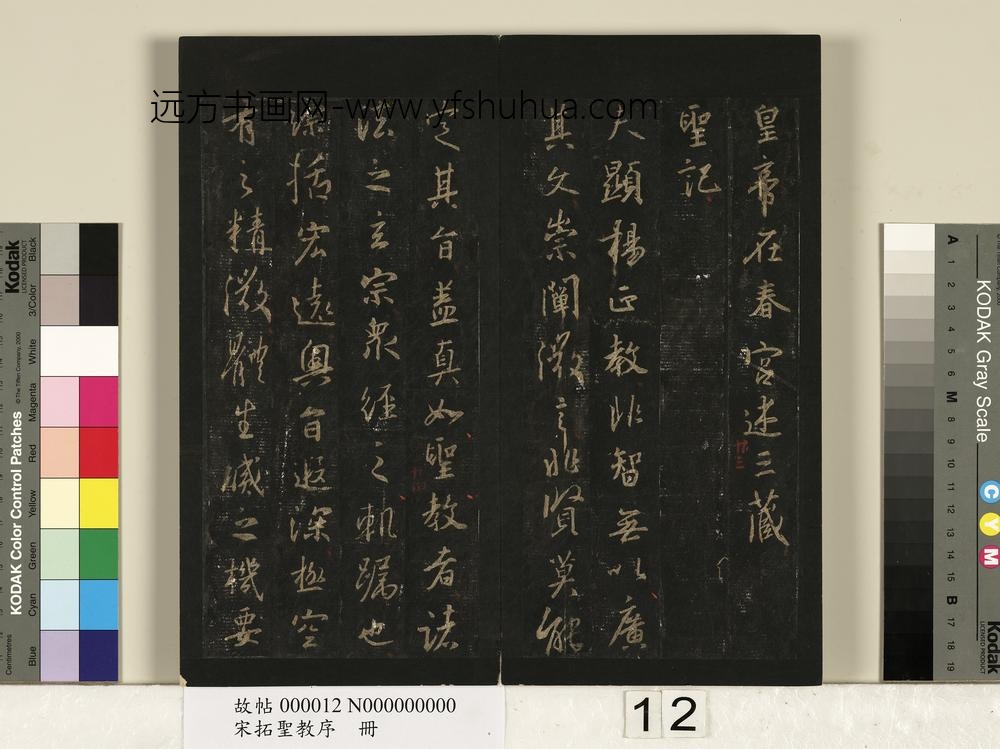 皇帝在春宮述三藏
聖記
夫顯揚正教非智無以廣
其文崇闡微言非賢莫能
定其旨蓋真如聖教者諸
法之玄宗衆經之軌躅也
綜括宏遠奧旨遐深極空
有之精微體生滅之機要
远方书画网-www.yfshuhua.com
故帖 000012 N000000000
宋拓聖教序 冊
12
Kodak
LICENSED PRODUCT
KODAK Color Control Patches
© The Tiffen Company, 2000
Centimetres
Blue
Cyan
Green
Yellow
Red
Magenta
White
3/Color
Black
KODAK Gray Scale
A 1 2 3 4 5 6 M 8 9 10 11 12 13 14 15 B 17 18 19
C
Y
M
Kodak
LICENSED PRODUCT